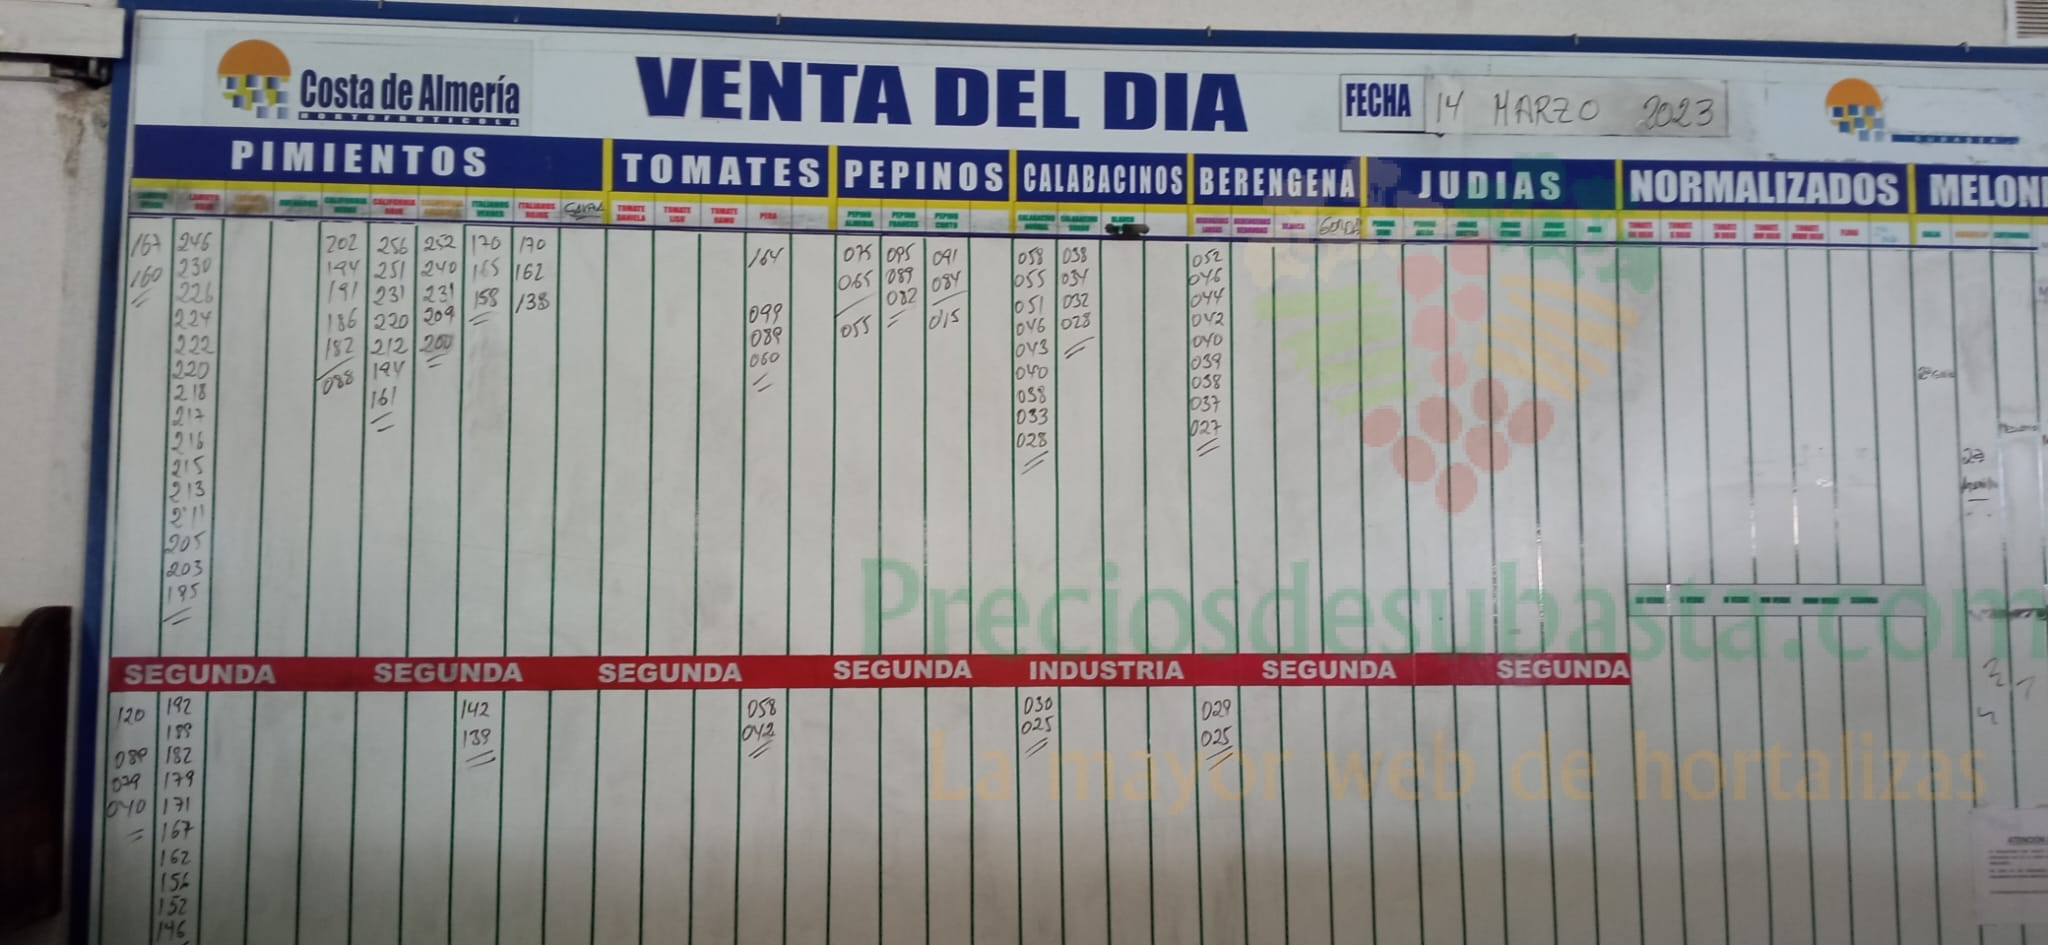 Costa de Almería
HORTOFRUTICOLA
VENTA DEL DIA
FECHA 14 MARZO 2023
PIMIENTOS TOMATES PEPINOS CALABACINOS BERENGENA JUDIAS NORMALIZADOS MELON
CALIFORNIA ITALIANOS VERDES ITALIANOS ROJOS TOMATE DANIELA TOMATE LISO TOMATE RAMO PERA PEPINO ALMERIA PEPINO FRANCES PEPINO CORTO
167 246 202 256 252 170 170 164 075 095 091 058 038 052
160 230 194 251 240 165 162 065 089 084 055 034 046
226 191 231 231 158 138 099 082 051 032 044
224 186 220 209 089 055 015 046 028 042
222 182 212 200 060 043 040
220 088 194 040 039
218 161 038 038
217 033 037
216 028 027
215
213
211
205
203
195
SEGUNDA SEGUNDA SEGUNDA SEGUNDA INDUSTRIA SEGUNDA SEGUNDA
120 192 142 058 030 029
189 139 042 025 025
089 182
079 179
040 171
167
162
156
152
146
Preciosdesubasta.com
La mayor web de hortalizas